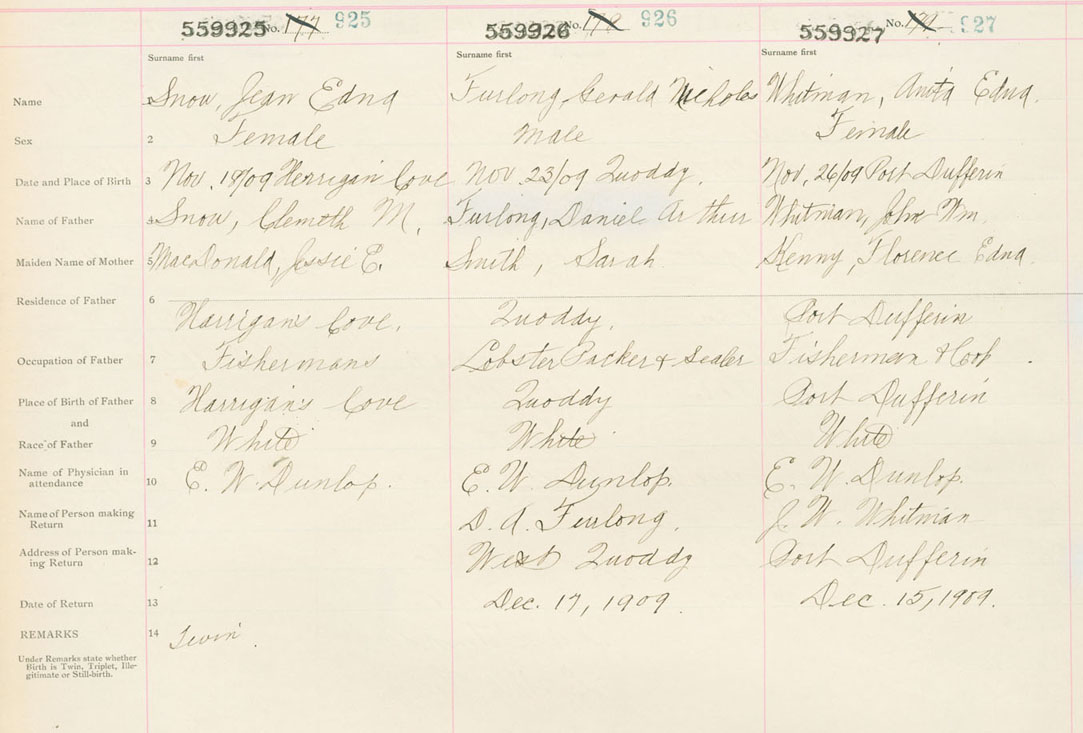 559925 No. 177 925 559926 No. 178 926 559927 No. 179 927
Surname first Surname first Surname first
Name 1 Snow, Jean Edna Furlong, Gerald Nicholas Whitman, Anita Edna.
Sex 2 Female Male Female
Date and Place of Birth 3 Nov. 19/09 Herrigan Cove Nov. 23/09 Quoddy. Nov. 26/09 Port Dufferin
Name of Father 4 Snow, M. Furlong, Daniel Arthur Whitman, John Wm.
Maiden Name of Mother 5 MacDonald, Jessie E. Smith, Sarah Kenny, Florence Edna.
Residence of Father 6 Harrigan's Cove. Quoddy. Port Dufferin
Occupation of Father 7 Fishermans Lobster Packer & Sealer Fisherman &
Place of Birth of Father 8 Harrigan's Cove Quoddy Port Dufferin
and
Race of Father 9 White White White
Name of Physician in
attendance 10 E. W. Dunlop. E. W. Dunlop. E. W. Dunlop.
Name of Person making
Return 11 D. A. Furlong. J. W. Whitman
Address of Person mak-
ing Return 12 West Quoddy Port Dufferin
Date of Return 13 Dec. 17, 1909. Dec. 15, 1909.
REMARKS 14 Twin.
Under Remarks state whether
Birth is Twin, Triplet, Ille-
gitimate or Still-birth.